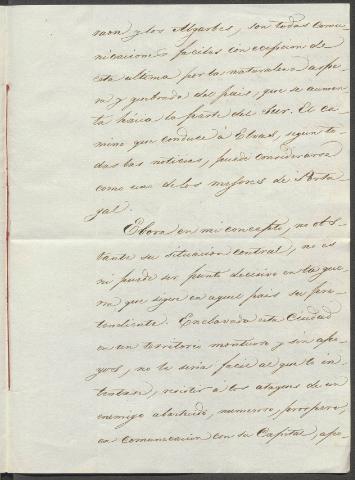 raon y los Algarbes, son todas comu-
nicaciones faciles con ecepcion de
esta ultima por la naturaleza aspe-
ra y quebrada del pais, que se aumen-
ta hácia la parte del Sur. El ca-
mino que conduce á Eboras, segun to-
das las noticias, puede considerarse
como uno de los mejores de Portu
gal.
Ebora en mi concepto, no obs-
tante su situacion central, no es
ni puede ser punto decisivo en la gue-
rra que sigue en aquel pais su pre-
tendiente. Enclavada esta Ciudad
en un territorio montuoso y sin apo-
yos, no le seria facil al que lo in-
tentase, resistir á los ataques de un
enemigo numeroso, prospero,
en comunicacion con su Capital, apo-